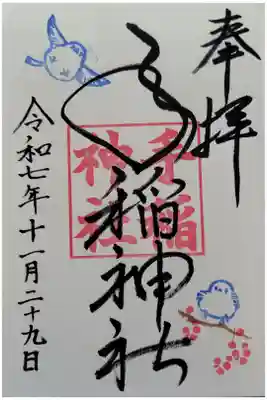 奉拝
手稲神社
手稲神社
令和七年十一月二十九日